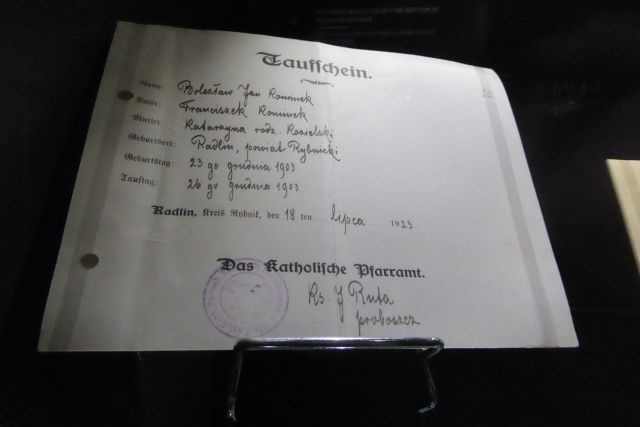 Taufschein.
Name: Bolesław Jan Kominek
Vater: Franciszek Kominek
Mutter: Katarzyna rodz. Kozielski
Geburtsort: Radlin, powiat Rybnicki
Geburtstag: 23 go grudnia 1903
Tauftag: 26 go grudnia 1903
Radlin, Kreis Rybnik, den 18 ten lipca 1923
Das Katholische Pfarramt.
Ks J Ruta
proboszcz